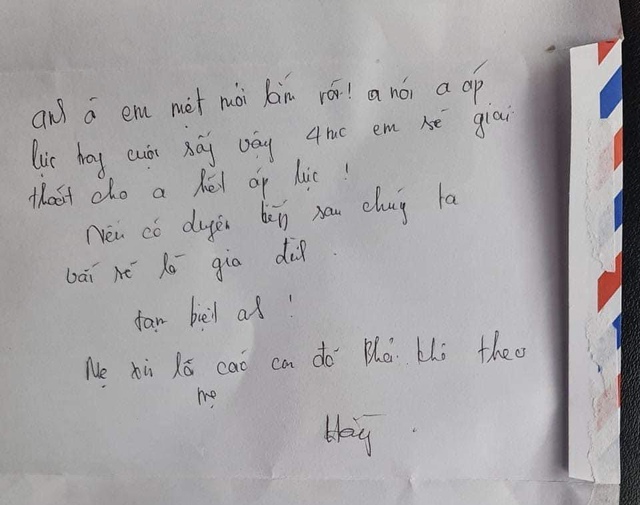 anh à em mệt mỏi lắm rồi! a nói a áp
lực hay cuộc sống vậy 4 mc em sẽ giải
thoát cho a hết áp lực!
Nếu có duyên kiếp sau chúng ta
vẫn sẽ là gia đình.
tạm biệt anh!
Mẹ xin lỗi các con đã phải khổ theo
mẹ